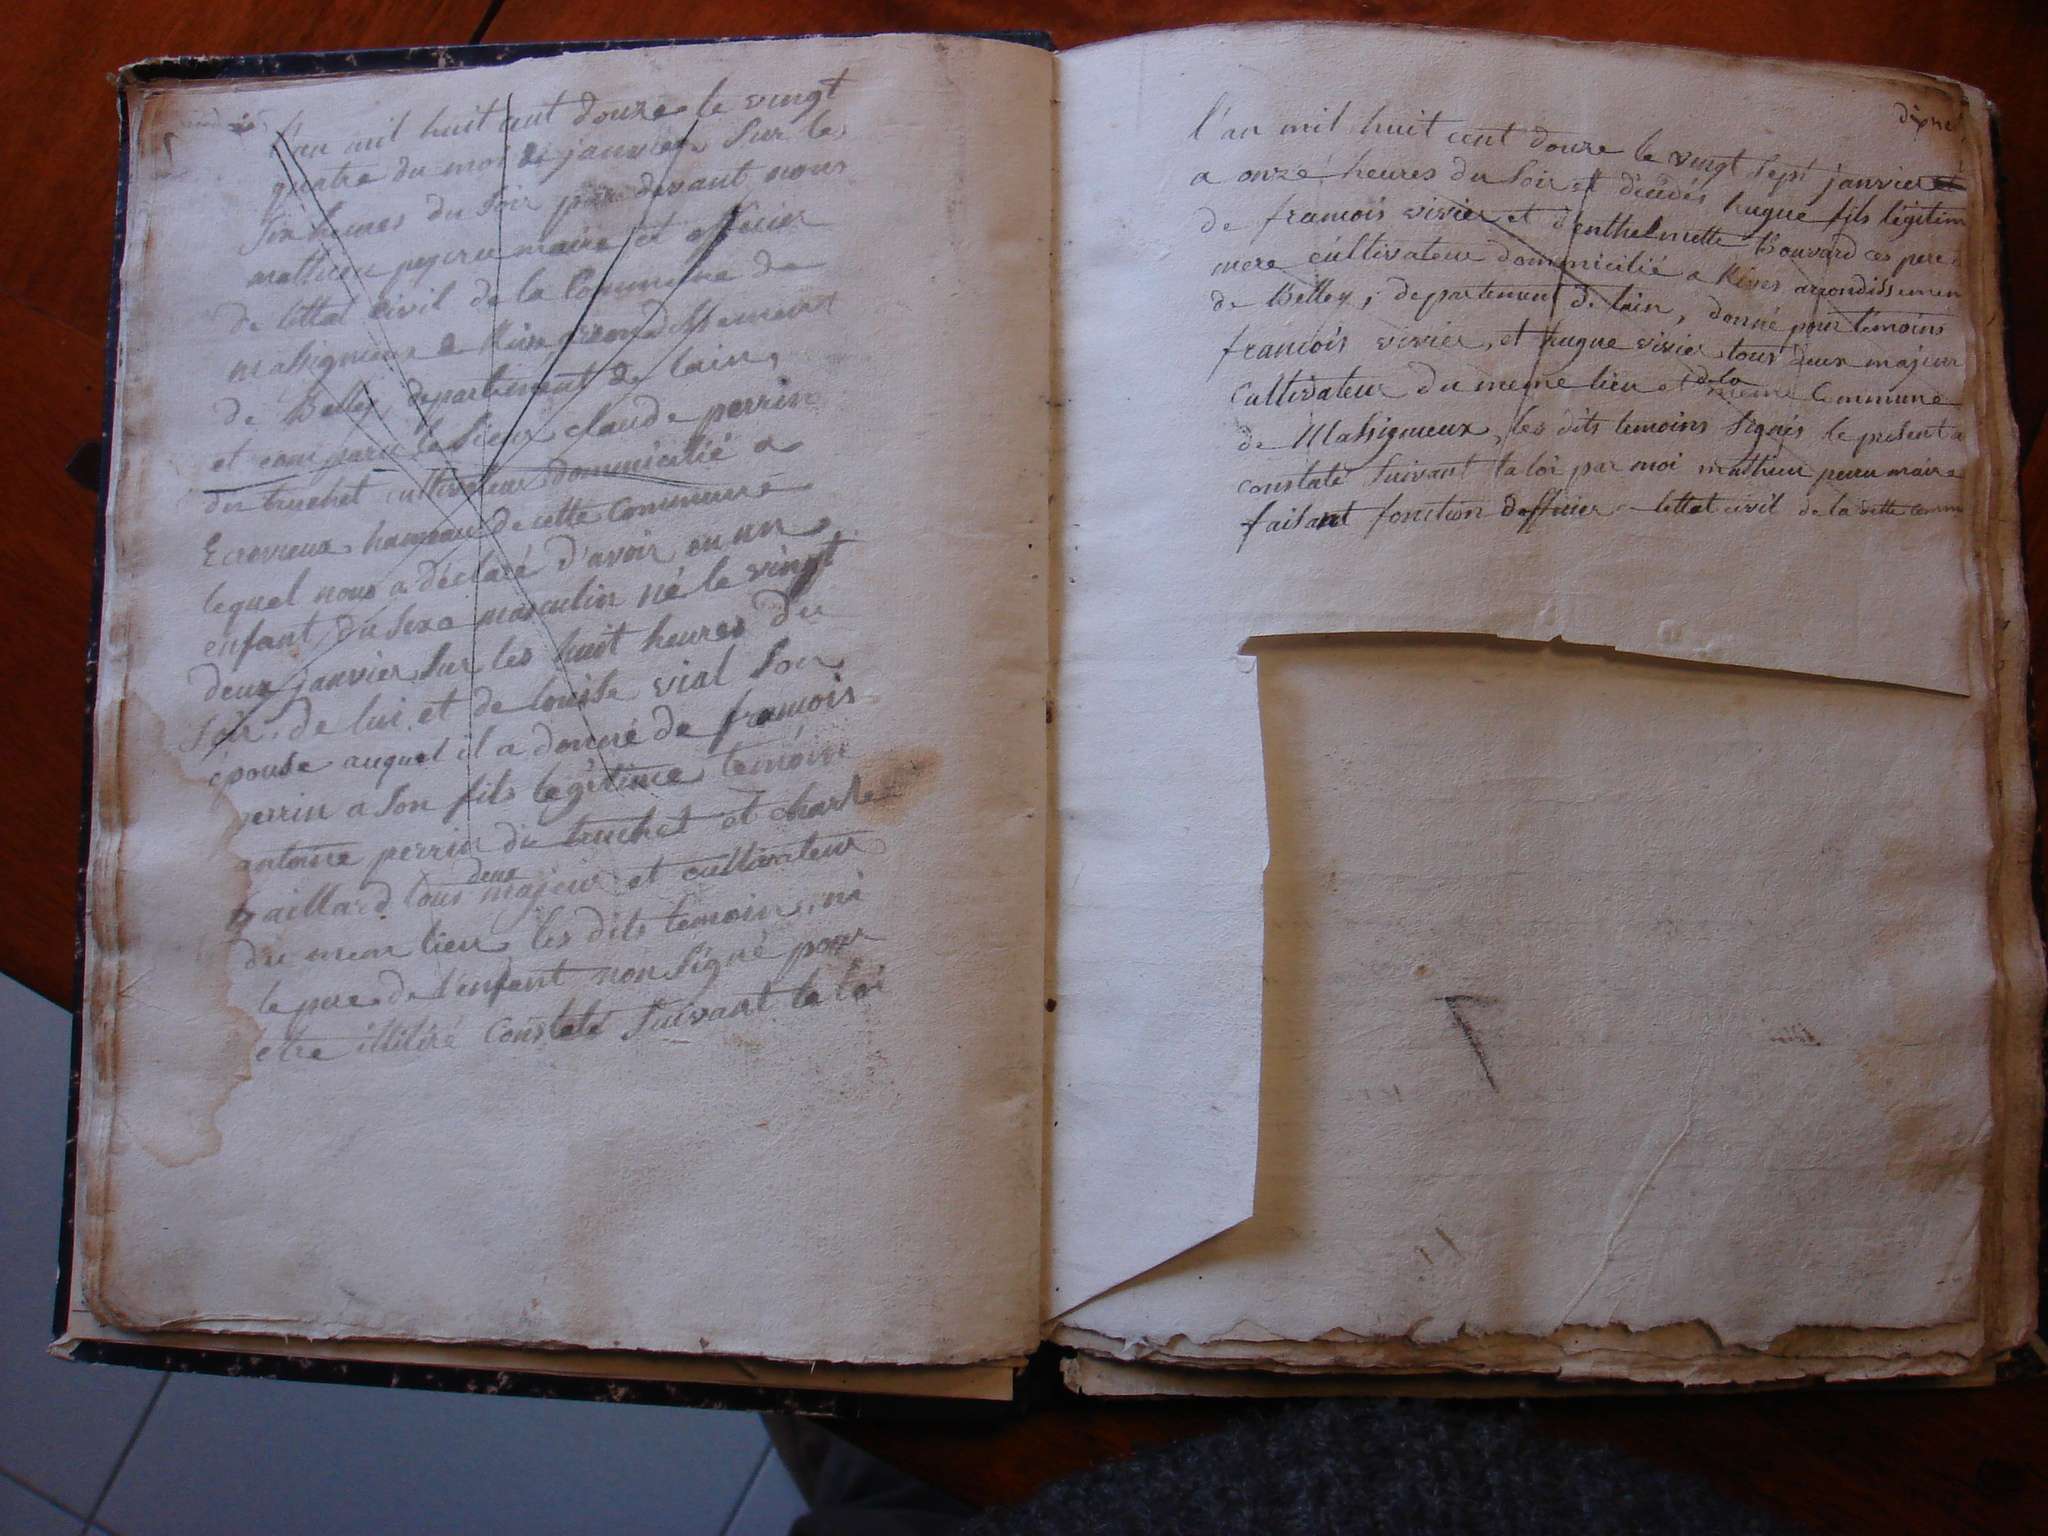 l'an mil huit cent douze le vingt
quatre du mois de janvier sur les
six heures du soir par devant nous
mathieu peycru maire et officier
de lettat civil de la Commune de
massigneux de Rive arrondissement
de Belley departement de lain,
et comparu le sieur claude perrin
du truchet cultivateur dommicilié a
Ecrevieux hameau de cette Commune
lequel nous a déclaré d'avoir eu un
enfant du sexe masculin né le vingt
deux janvier sur les huit heures du
soir de lui et de louise vial son
épouse auquel il a donné de francois
perrin a son fils legitime temoin
antoine perrin du truchet et charle
gaillard tous deux majeur et cultivateur
du meme lieu les dits temoin, ni
le pere de l'enfant non signé pour
etre illitéré constaté suivant la loi
l'an mil huit cent douze le vingt sept janvier
a onze heures du soir et décédés hugue fils légitim
de francois vivier et d'enthelmette Bouvard ces pere
mere cultivateur dommicilié a Rives arrondissemen
de Belley, departement de lain, donné pour temoins
francois vivier, et hugue vivier tous deux majeur
Cultivateur du meme lieu et de la meme Commune
de Massigneux, les dits temoins signés le present a
constaté suivant la loi par moi mathieu peeru maire
faisant fonction dofficier lettat civil de la ditte comm